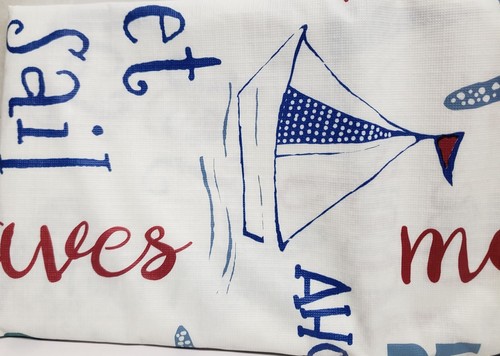 et
Sail
aves
AHO
me